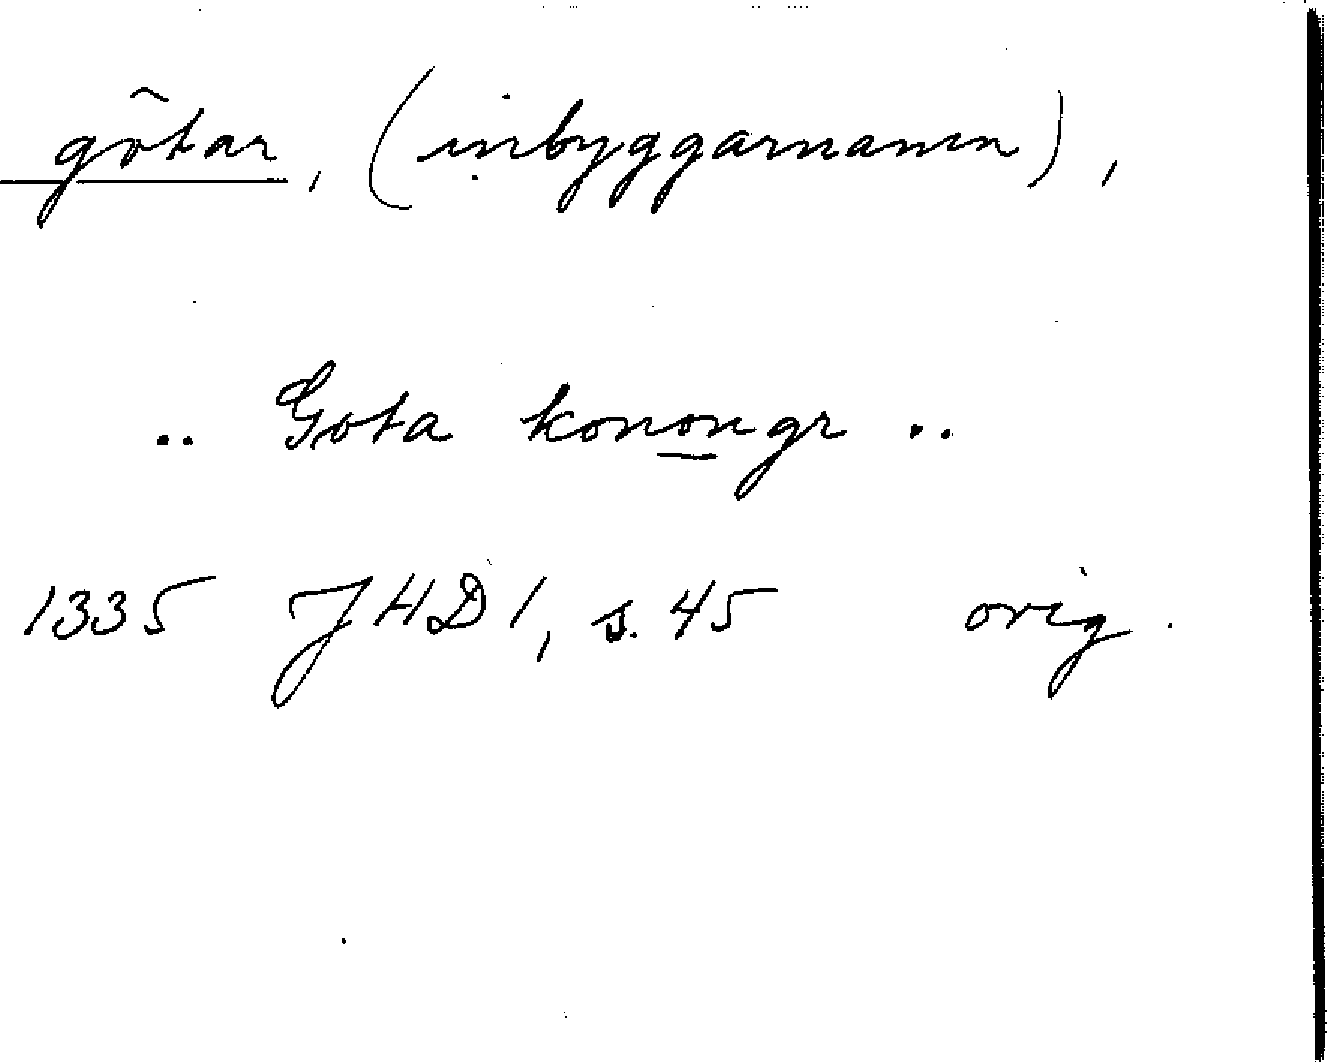 götar, (inbyggarnamn),
.. Gota konongr ..
1335 JHD 1, s. 45 orig.